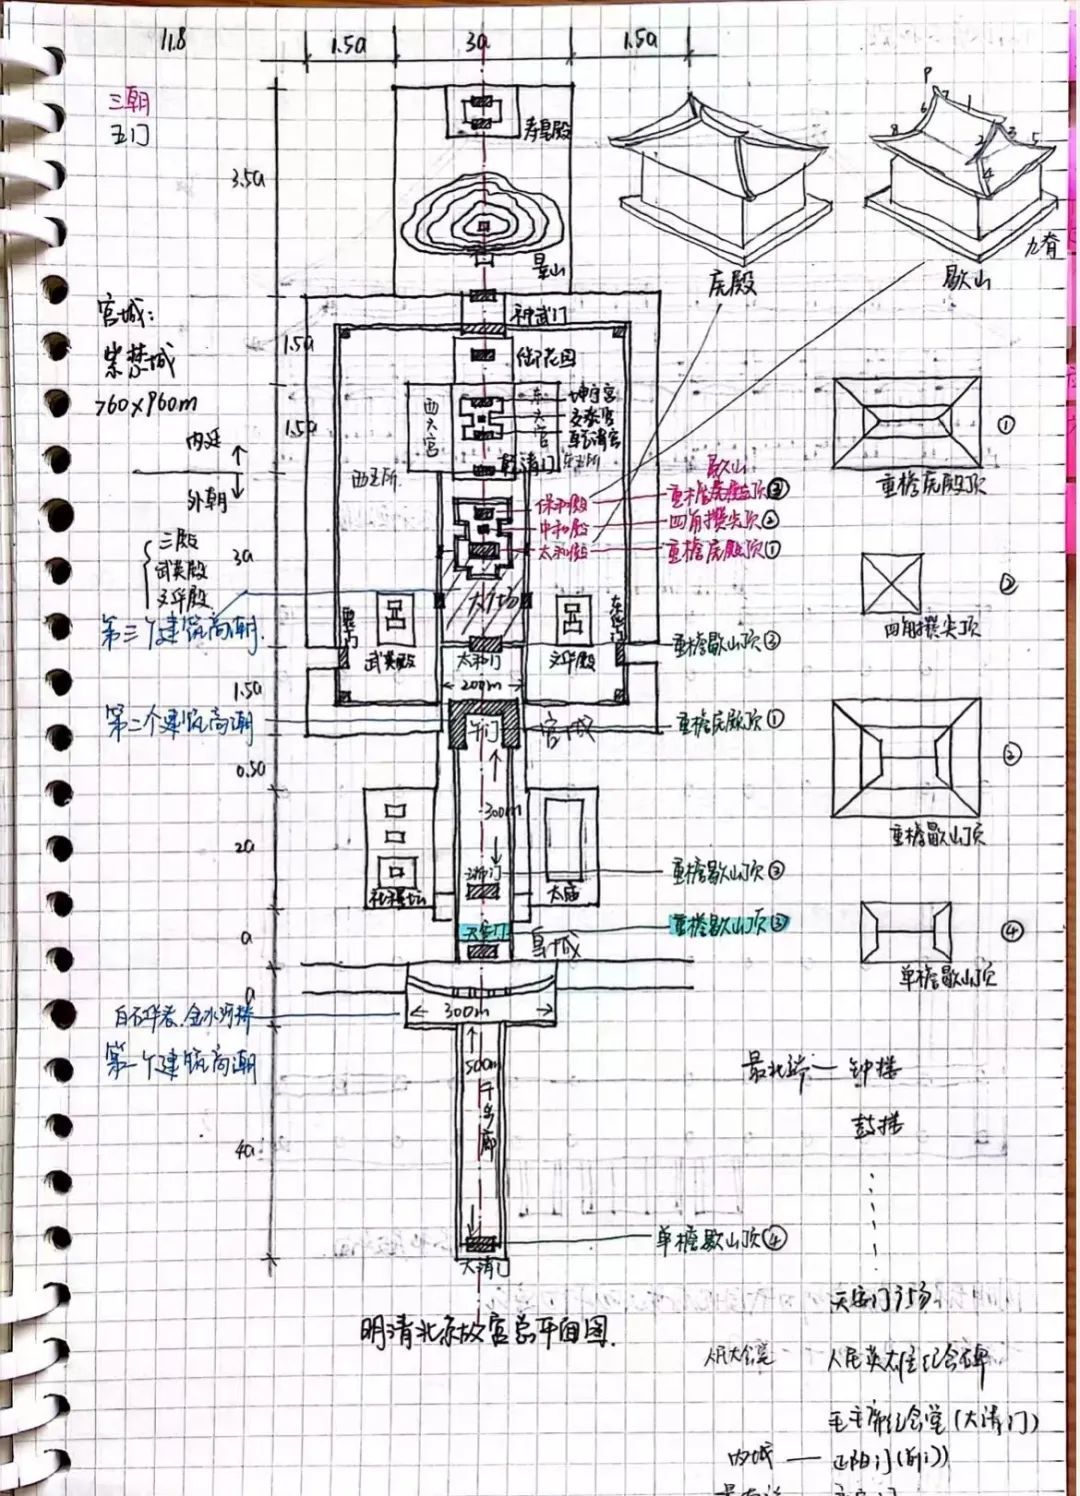 11.8
1.5a 3a 1.5a
三朝
五门
3.5a
寿皇殿
景山
庑殿
歇山
九脊
P
1
2
3
4
5
6
7
8
宫城:
紫禁城
760×960m
1.5a
神武门
御花园
1.5a
内廷
外朝
西六宫
东六宫
坤宁宫
交泰宫
乾清宫
乾清门
西五所
东五所
重檐庑殿顶
①
歇山
保和殿 重檐庑殿顶③
中和殿 四角攒尖顶②
太和殿 重檐庑殿顶①
三殿
武英殿
文华殿
3a
大广场
②
四角攒尖顶
第三个建筑高潮
西华门
东华门
武英殿
太和门
文华殿
重檐歇山顶③
200m
1.5a
第二个建筑高潮
午门
宫城
重檐庑殿顶①
0.5a
300m
重檐歇山顶
2a
社稷坛
端门
太庙
重檐歇山顶③
天安门
重檐歇山顶③
a
皇城
④
单檐歇山顶
a
白石华表、金水河桥
300m
第一个建筑高潮
500m
千步廊
4a
最北端—钟楼
鼓楼
大清门
单檐歇山顶④
明清北京故宫总平面图.
天安门广场
人民大会堂
人民英雄纪念碑
毛主席纪念堂(大清门)
内城 — 正阳门(前门)